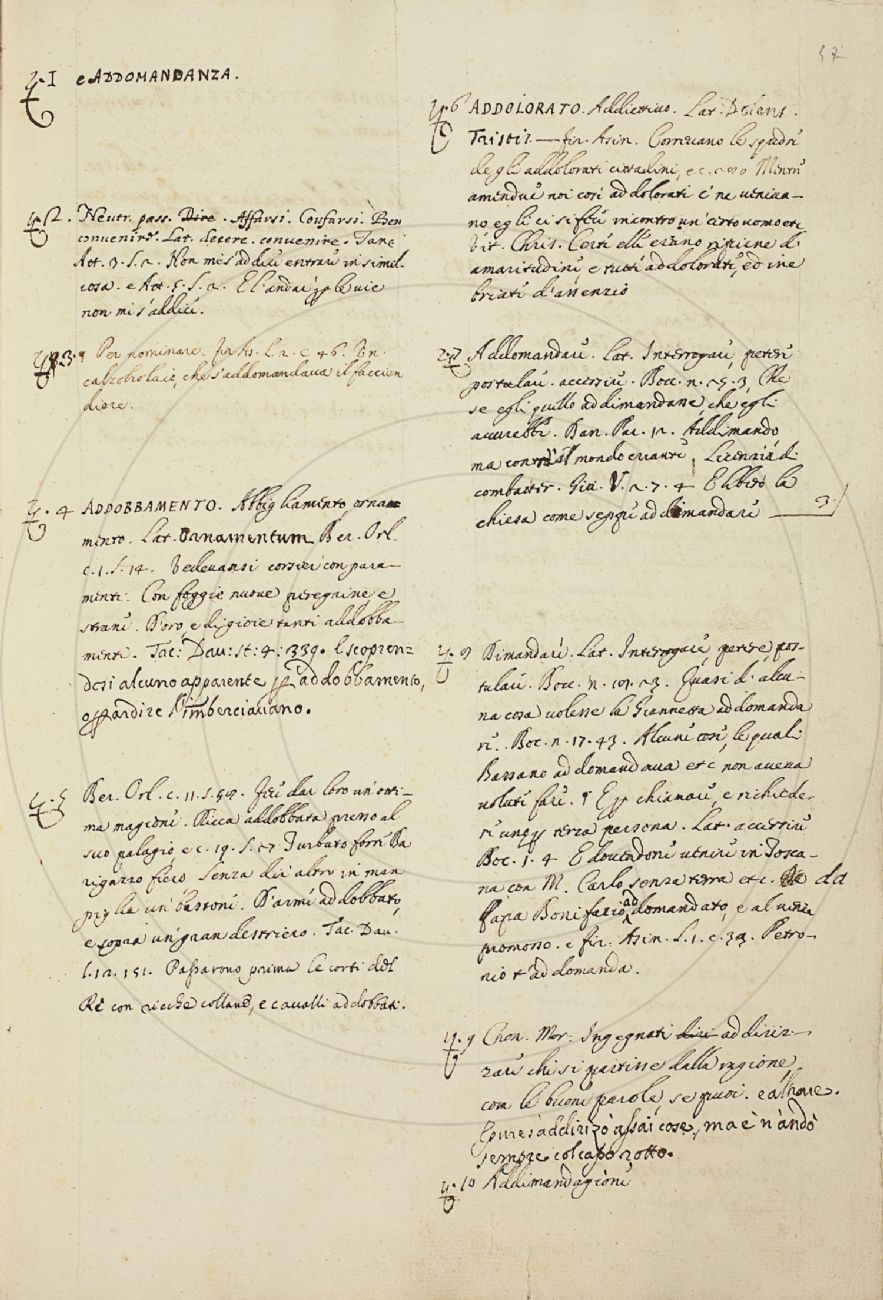 57
4. 1 e ADDOMANDANZA.
4. 2. Neutr. pass. Dire. Affarsi. Confarsi. Ben
convenire. Lat. decere. convenire. Tanc
Att. 3. S. 2. Non mi s'addice entrare in simil
cosa. e Att. 5. S. 2. E l'andar per le vie
non mi s'addice.
4. 3. Per nominare. fir. As. l. 2. c. 46. Un
calzolaio, che s'addomandava il faccen
diere.
4. 4 ADDOBBAMENTO. Abbigliamento, orna
mento. Lat. Ornamentum Ber. Orl.
c. 1. S. 14. Vedevansi corsier con para-
menti. Con foggie nuove peregrine e
strane. D'oro e di gioie tanti addobba-
menti. Tac: Dav: st: 4: 339. Escopren-
dosi alcuno apparente per addobbamento,
o per ardire l'imberciavano.
4. 5 Ber. Orl. c. 11. S. 54. feci dar loro un'otti-
ma magione. Ricca addobbata presso al
suo palagio, e c. 19. S. 57 Turbato forte
ragazzo fiero Senza dir altro in man
piglia un bastone. D'arme addobbato,
e sopra un gran destriero. Tac. Dav.
l. 12. 151. Passarono prima le corti del
Re con ricche collane, e cavalli addobbati.
4. 6 ADDOLORATO. Addiettivo. Lat. Dolens.
Tristis. — fir. Asin. Con
degli addolorati cittadini, e c. Mentre
amendue noi così addolorati ce ne veniva-
no egli ci si feci incontro un certo uomo etc.
Vit. Chris. Certi elli erano ripiene di
amaritudine e tutti addolorati, ed ine
briati d'assenzio
7 Addomandare. Lat. Interrogare, petere
postulare. accersire. Boc. n. 25. 3. Che
se egli quello addimandasse che egli
avrebbe. Dan. Par. 12. Addimandò
ma contro al mondo errante, Licenzia di
combatter. Gio. V. 2. 7. 4 E libero la
chiesa come seppe addimandare — 3.
4. 8 Dimandare. Lat. Interrogare, petere, pos-
tulare. Boc. n. 23. Quasi d'alcu-
na cosa volesse la Giannetta addomanda
re. Boc. n. 17. 43. Alcune cose, le quali
Bassano addomandava etc. non aveva
volute fare. ¶ E per chiamare, e richiede-
re un per terza persona. Lat. accersire
Boc. 1. 4 E dovendone venire in Tosca-
na con M. Carlo senza terra etc. da
Papa Bonifazio addomandato, e al venire
promosso. e fir. Asin. l. 1. c. 39. Petro-
nio t'addomanda.
4. 9 Cron. Mor. Ingegnati addiriz-
zare chi si partisse dalla ragione,
con le buone parole, se puoi. e altrove.
E pure s'addirizò assai cose, ma e' n'andò
sempre col capo rotto.
4. 10 Addimandagione